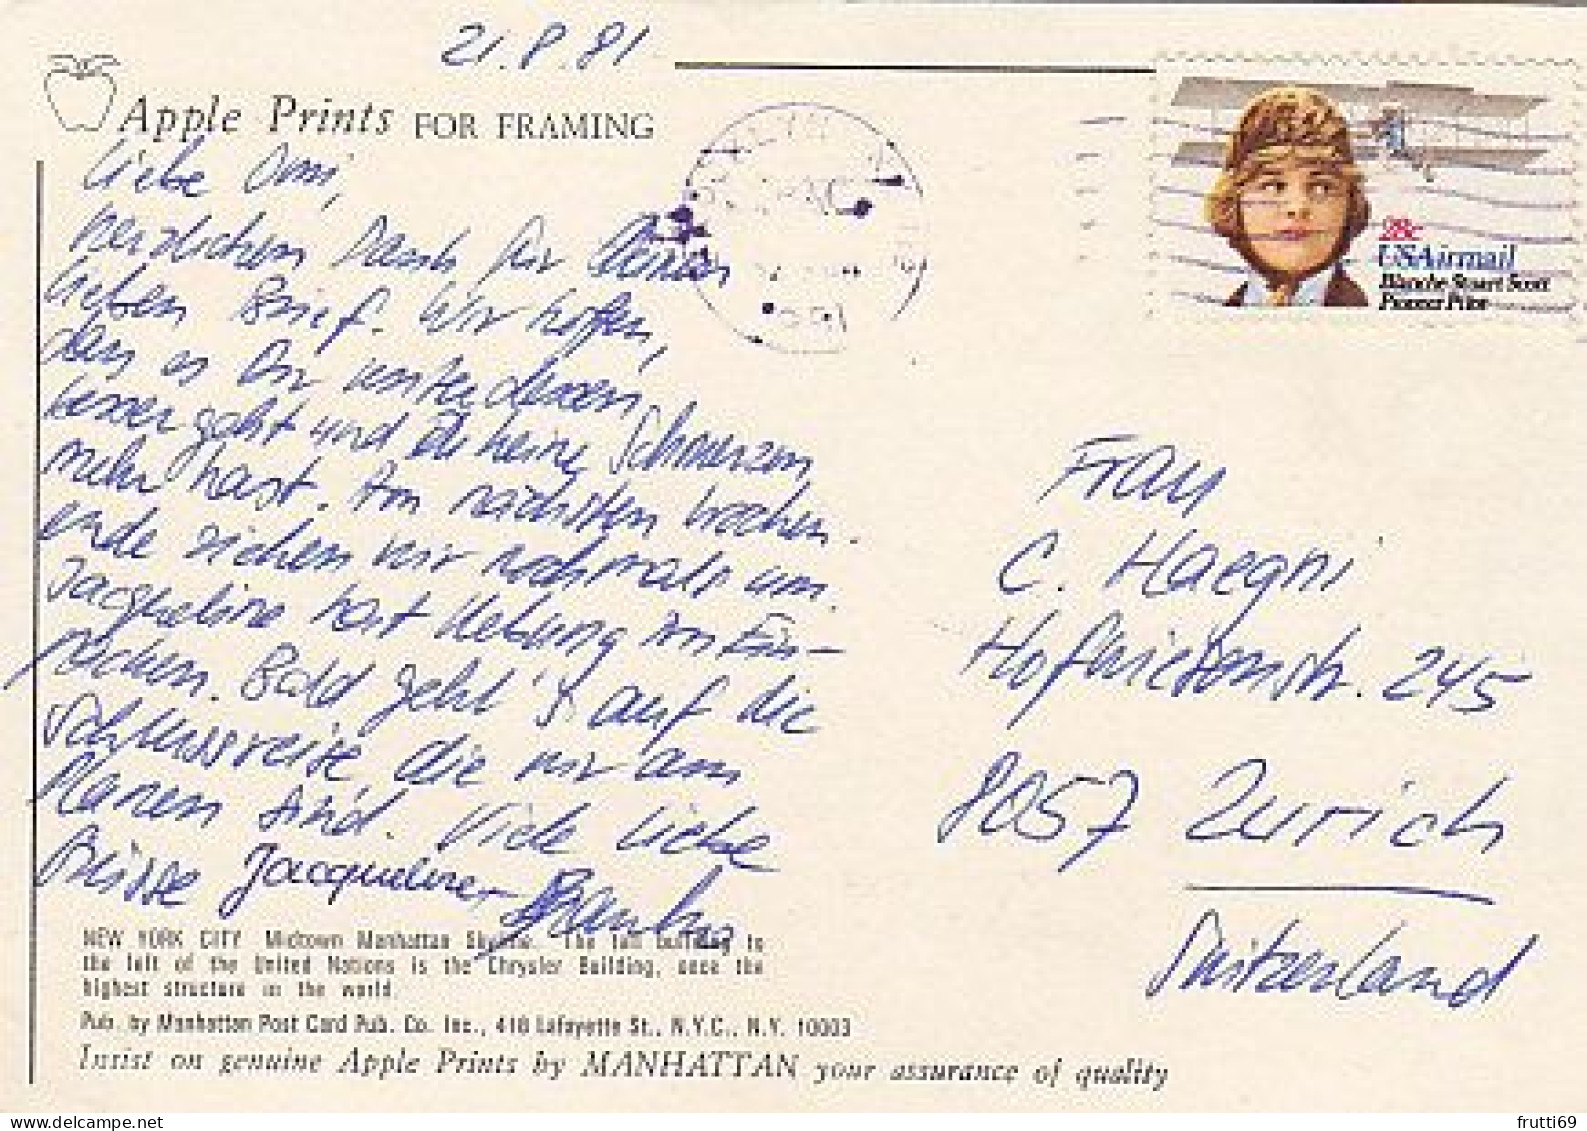 21.8.81
Apple Prints FOR FRAMING
Liebe Omi,
herzlichen Dank für Deinen
lieben Brief. Wir hoffen,
dass es Dir unterdessen
besser geht und Du keine Schmerzen
mehr hast. Am nächsten Wochen-
ende ziehen wir nochmals um.
Jacqueline hat Uebung im Ein-
packen. Bald geht's auf die
Schlussreise, die wir am
Planen sind. Viele liebe
Grüsse Jacqueline
28c
USAirmail
Blanche Stuart Scott
Pioneer Pilot
Frau
C. Haegni
245
8057 Zürich
Switzerland
NEW YORK CITY Midtown Manhattan Skyline. The tall building to
the left of the United Nations is the Chrysler Building, once the
highest structure in the world.
Pub. by Manhattan Post Card Pub. Co. Inc., 410 Lafayette St., N.Y.C., N.Y. 10003
Insist on genuine Apple Prints by MANHATTAN your assurance of quality
frutti69